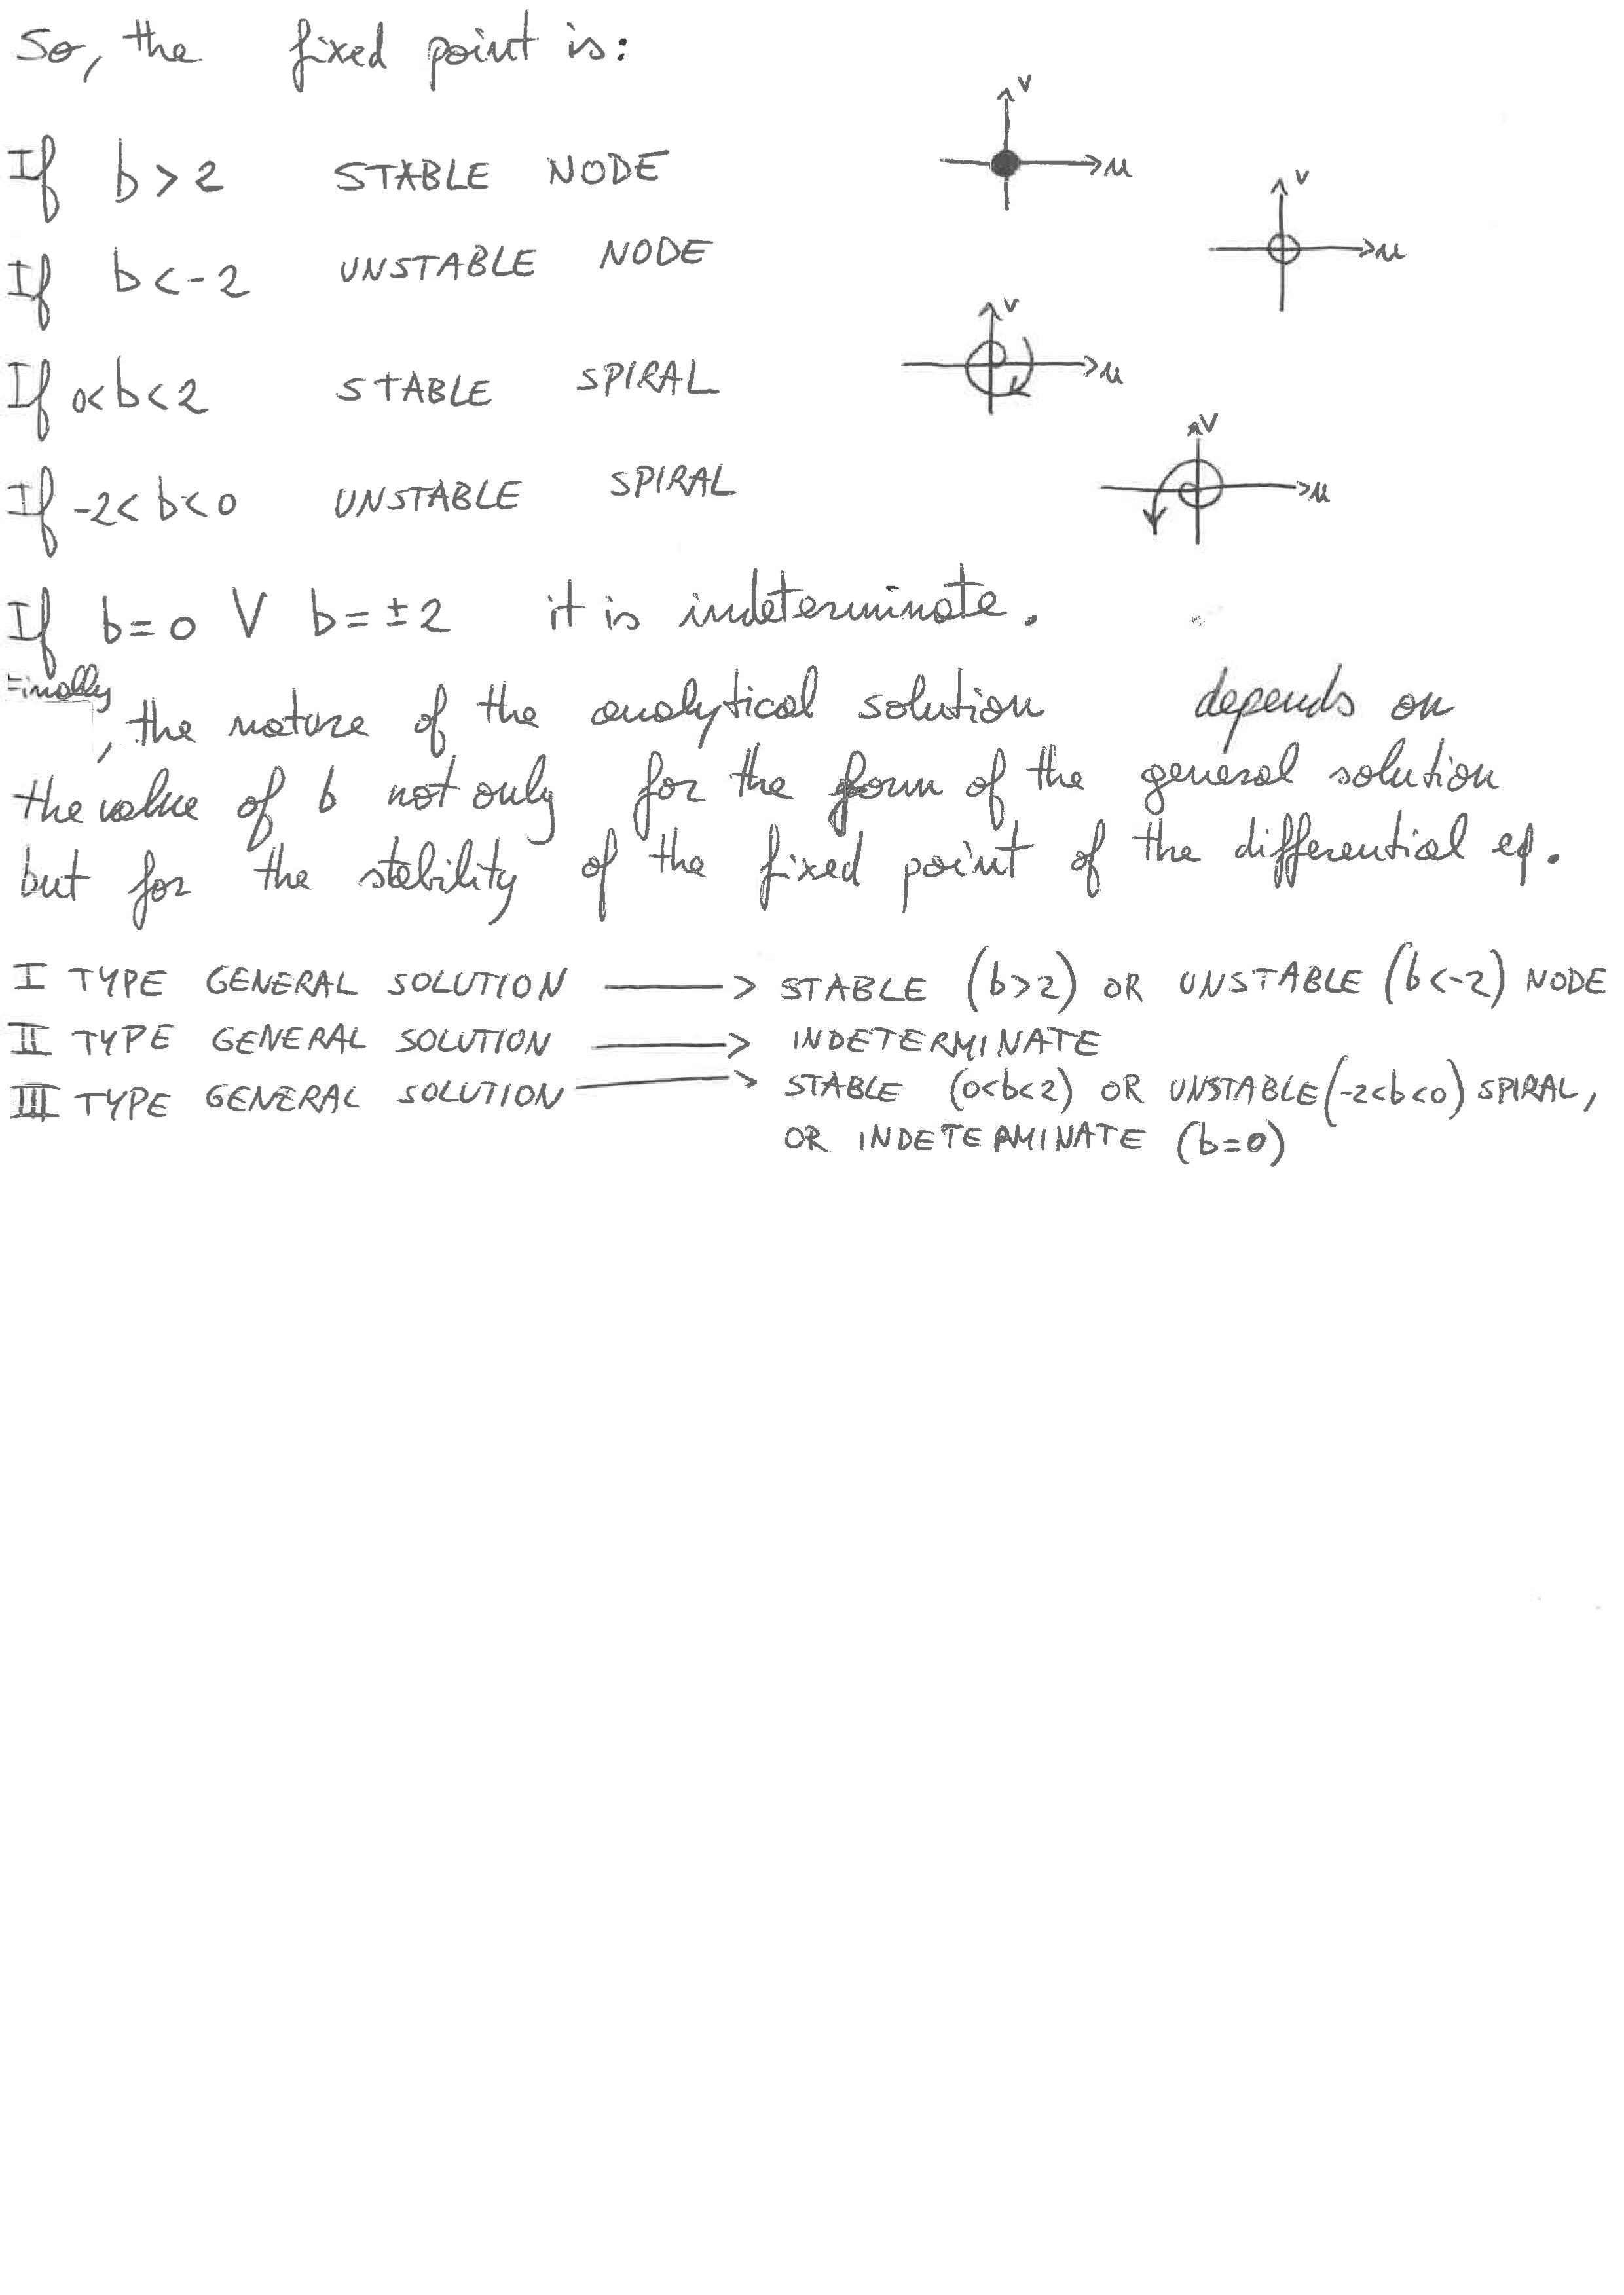 So, the fixed point is:
v
u
If b > 2 STABLE NODE
v
u
If b < -2 UNSTABLE NODE
v
u
If 0 < b < 2 STABLE SPIRAL
v
u
If -2 < b < 0 UNSTABLE SPIRAL
If b = 0 V b = ± 2 it is indeterminate.
Finally, the nature of the analytical solution depends on
the value of b not only for the form of the general solution
but for the stability of the fixed point of the differential eq.
I TYPE GENERAL SOLUTION —> STABLE (b>2) OR UNSTABLE (b<-2) NODE
II TYPE GENERAL SOLUTION —> INDETERMINATE
III TYPE GENERAL SOLUTION —> STABLE (0<b<2) OR UNSTABLE (-2<b<0) SPIRAL,
OR INDETERMINATE (b=0)